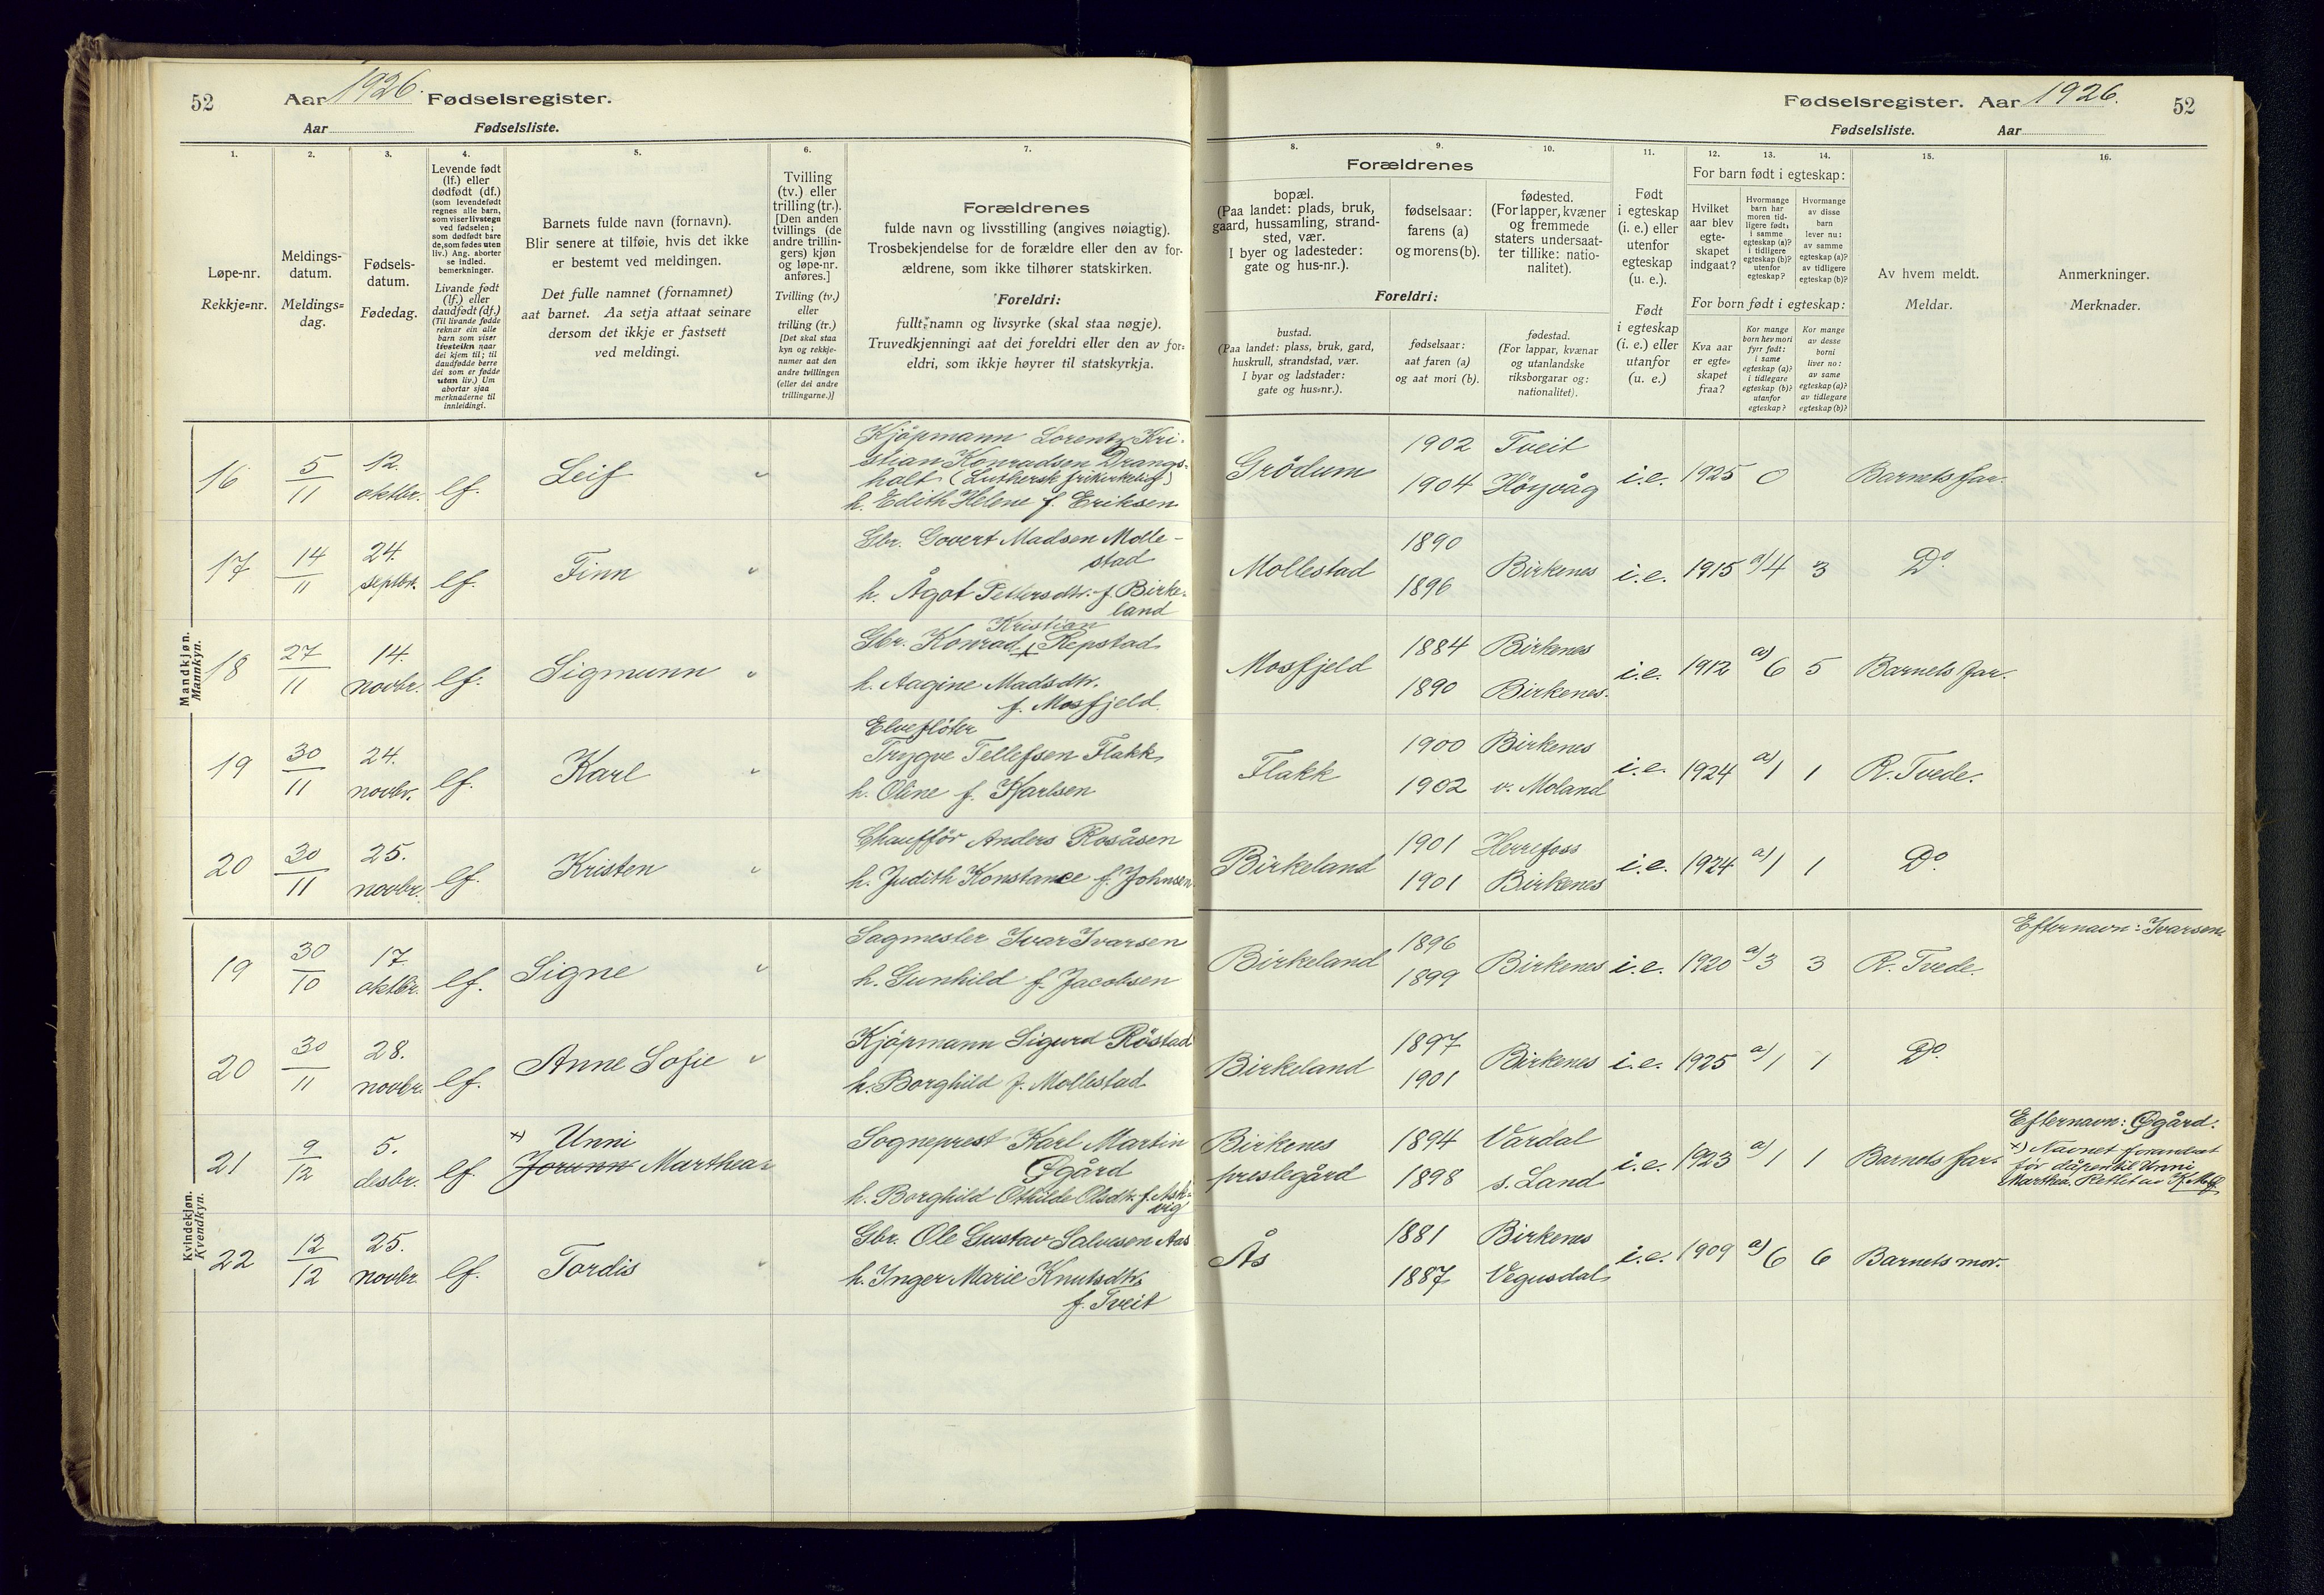 52
Aar 1926. Fødselsregister.
Aar Fødselsliste.
Fødselsregister. Aar 1926.
52
Fødselsliste. Aar
1.
Løpe-nr.
Rekkje=nr.
2.
Meldings-
datum.
Meldings=
dag.
3.
Fødsels-
datum.
Fødedag.
4.
Levende født
(lf.) eller
dødfødt (df.)
(som levendefødt
regnes alle barn,
som viser livstegn
ved fødselen;
som dødfødt bare
de, som fødes uten
liv.) Ang. aborter
se indled.
bemerkninger.
Livande født
(lf.) eller
daudfødt (df.)
(Til livande fødde
reknar ein alle
barn som viser
livsteikn naar
dei kjem til; til
daudfødde berre
dei som er fødde
utan liv.) Um
abortar sjaa
merknaderne til
innleidingi.
5.
Barnets fulde navn (fornavn).
Blir senere at tilføie, hvis det ikke
er bestemt ved meldingen.
Det fulle namnet (fornamnet)
aat barnet. Aa setja attaat seinare
dersom det ikkje er fastsett
ved meldingi.
6.
Tvilling
(tv.) eller
trilling (tr.).
[Den anden
tvillings (de
andre trillin-
gers) kjøn
og løpe-nr.
anføres.]
Tvilling (tv.)
eller
trilling (tr.)
[Det skal staa
kyn og rekkje-
numer aat den
andre tvillingen
(eller dei andre
trillingarne.)]
7.
Forældrenes
fulde navn og livsstilling (angives nøiagtig).
Trosbekjendelse for de forældre eller den av for-
ældrene, som ikke tilhører statskirken.
Foreldri:
fullt namn og livsyrke (skal staa nøgje).
Truvedkjenningi aat dei foreldri eller den av for=
eldri, som ikkje høyrer til statskyrkja.
8.
Forældrenes
bopæl.
(Paa landet: plads, bruk,
gaard, hussamling, strand-
sted, vær.
I byer og ladesteder:
gate og hus-nr.).
Foreldri:
bustad.
(Paa landet: plass, bruk, gard,
huskrull, strandstad, vær.
I byar og ladstader:
gate og hus=nr.).
9.
fødselsaar:
farens (a)
og morens (b).
fødselsaar:
aat faren (a)
og aat mori (b).
10.
fødested.
(For lapper, kvæner
og fremmede
staters undersaat-
ter tillike: natio-
nalitet).
fødestad.
(For lappar, kvænar
og utanlandske
riksborgarar og:
nationalitet).
11.
Født
i egteskap
(i. e.) eller
utenfor
egteskap
(u. e.).
Født
i egteskap
(i. e.) eller
utanfor
(u. e.)
12. 13. 14.
For barn født i egteskap:
Hvilket
aar blev
egte-
skapet
indgaat?
Hvormange
barn har
moren tid-
ligere født:
i samme
egteskap (a)?
i tidligere
egteskap (b)?
utenfor
egteskap?
Hvormange
av disse
barn
lever nu:
av samme
egteskap (a)?
av tidligere
egteskap (b)?
For born født i egteskap:
Kva aar
er egte=
skapet
fraa?
Kor mange
born hev mori
fyrr født:
i same
egteskap (a)?
i tidlegare
egteskap (b)?
utanfor
egteskap?
Kor mange
av desse
borni
liver no:
av same
egteskap (a)?
av tidlegare
egteskap (b)?
15.
Av hvem meldt.
Meldar.
16.
Anmerkninger.
Merknader.
Mandkjøn.
Mannkyn.
16 5/11 12. oktbr. lf. Leif " Kjöpmann Lorentz Kri-
stian Konradsen Drangs-
holt (Luthersk frikirkelig)
h. Edith Helene f. Eriksen
Grödum 1902 Tveit 1904 Höyvåg i.e. 1925 0 Barnets far.
17 14/11 24. septbr. lf. Finn " Gbr. Govert Madsen Molle-
stad
h. Ågot Pettersdtr. f. Birke-
land
Mollestad 1890 1896 Birkenes i.e. 1915 a)4 3 Do.
18 27/11 14. novbr. lf. Sigmunn " Gbr. Konrad Kristian Repstad
h. Aagine Madsdtr.
f. Mosfjeld.
Mosfjeld 1884 Birkenes 1890 Birkenes. i.e. 1912 a)6 5 Barnets far.
19 30/11 24. novbr. lf. Karl " Elveflöter
Trygve Tellefsen Flakk
h. Oline f. Karlsen
Flakk 1900 Birkenes 1902 v. Moland i.e. 1924 a)1 1 R. Tvede.
20 30/11 25. novbr. lf. Kristen " Chaufför Anders Rosåsen
h. Judith Konstance f. Johnsen
Birkeland 1901 Herrefoss 1901 Birkenes i.e. 1924 a)1 1 Do.
Kvindekjøn.
Kvendkyn.
19 30/10 17. oktbr. lf. Signe " Sagmester Ivar Ivarsen
h. Gunhild f. Jacobsen
Birkeland 1896 1899 Birkenes i.e. 1920 a)3 3 R. Tvede. Efternavn: Ivarsen.
20 30/11 28. novbr. lf. Anne Sofie " Kjöpmann Sigurd Röstad
h. Borghild f. Mollestad
Birkeland 1897 1901 Birkenes i.e. 1925 a)1 1 Do.
21 9/12 5. desbr. lf. x) Unni
Jorunn Marthea
Sogneprest Karl Martin
Øgård
h. Borghild Othilde Olsdtr. f. Ask-
vig
Birkenes
prestegård 1894 Vardal 1898 s. Land i.e. 1923 a)1 1 Barnets far.
Efternavn: Øgård.
x) Navnet forandret
før dåpen til Unni
Marthea. Rettet av
22 12/12 25. novbr. lf. Tordis " Gbr. Ole Gustav Salvesen Aas
h. Inger Marie Knutsdtr.
f. Tveit
Ås 1881 Birkenes 1887 Vegusdal i.e. 1909 a)6 6 Barnets mor.